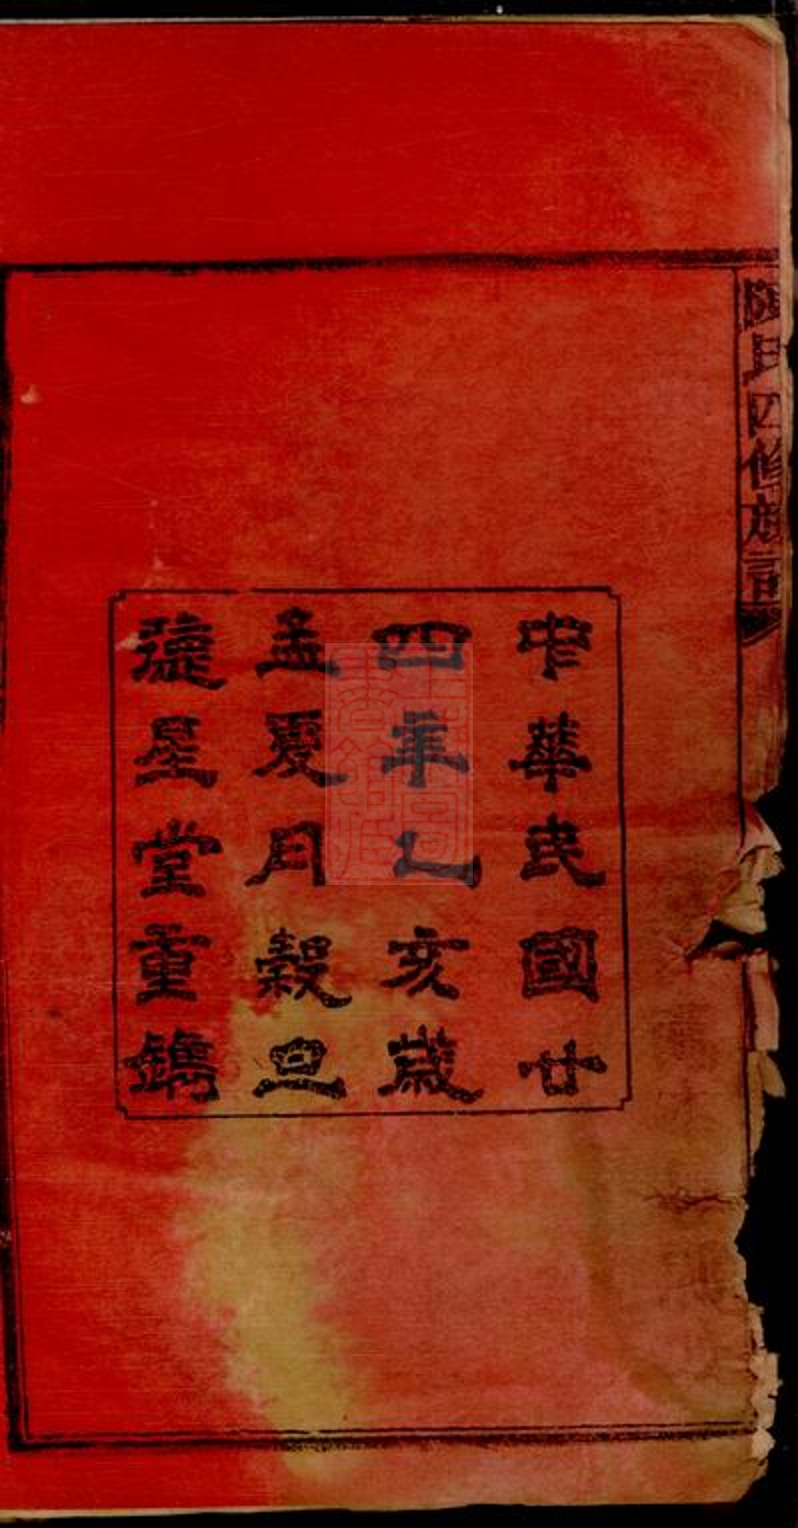 陳氏四修族譜
中華民國廿
四年乙亥歲
孟夏月穀旦
德星堂重鐫